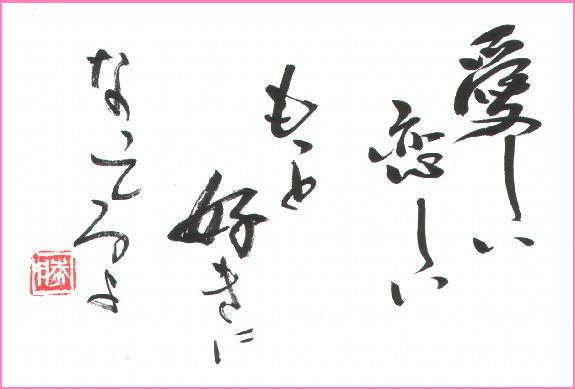 愛しい
恋しい
もっと
好きに
なってるよ
勝